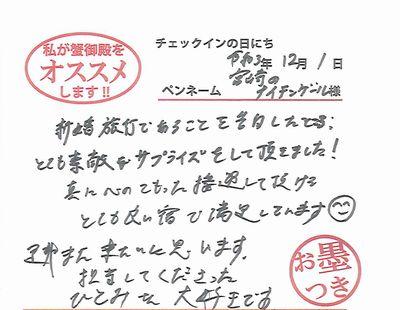 私が蟹御殿を
オススメ
します!!
チェックインの日にち
令和3年 12月 1日
ペンネーム 宮崎の
ナイチンゲール様
新婚旅行であることを告白したところ、
とても素敵なサプライズをして頂きました!
真に心のこもった接遇して頂けて
とても良い宿で満足しています
是非また来たいと思います。
担当してくださった
ひとみさん 大好きです
お墨
つき